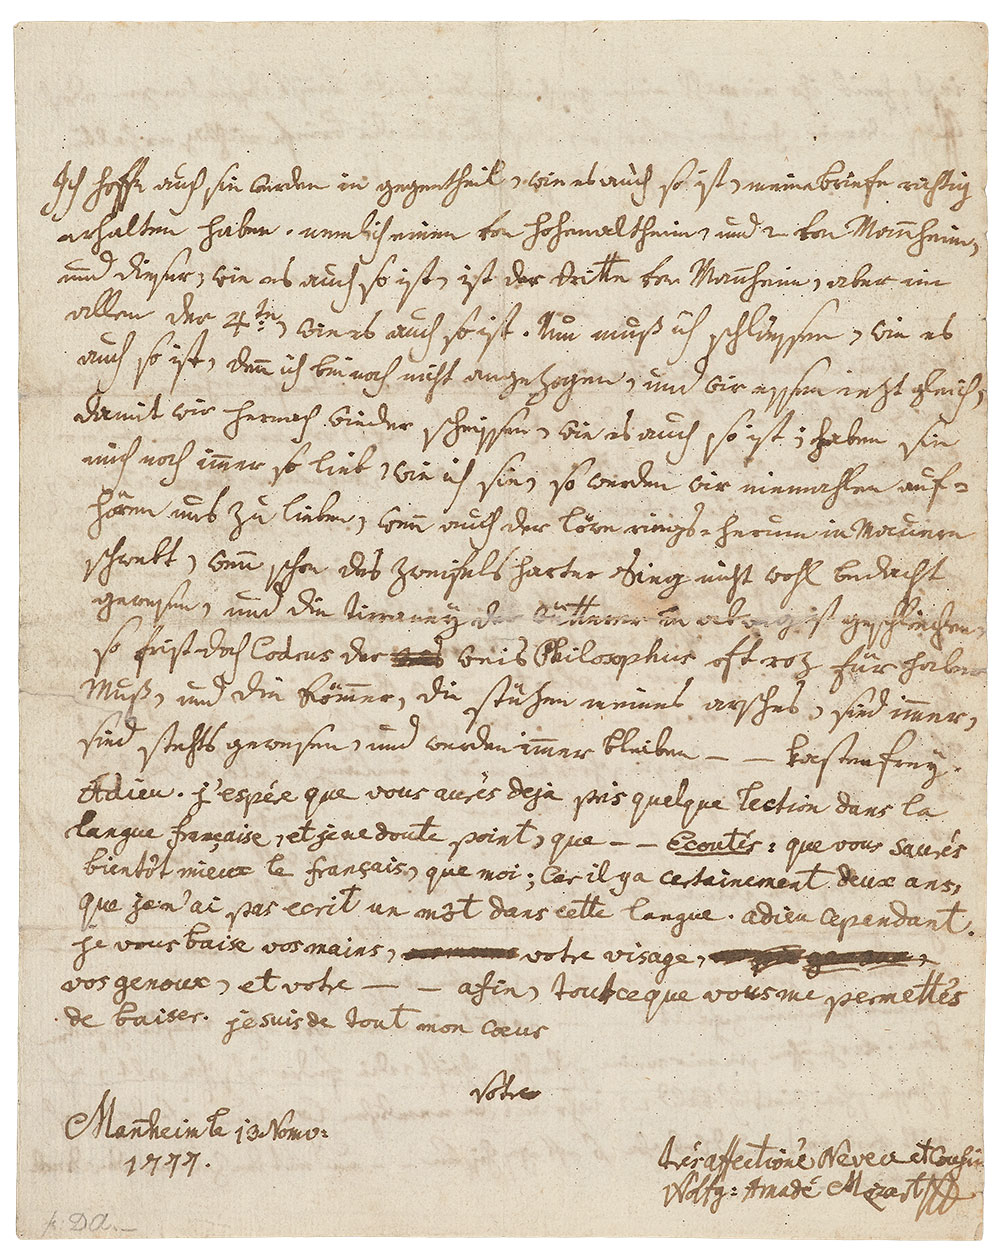 Ich hoffe auch sie werden in gegentheil, wie es auch so ist, meine briefe richtig
erhalten haben. nemlich einen von hohenaltheim, und 2 von Mannheim,
und dieser, wie es auch so ist, ist der dritte von Mannheim, aber im
allen der 4:te, wie es auch so ist. Nun muß ich schliessen, wie es
auch so ist, denn ich bin noch nicht angezogen, und wir essen iezt gleich,
damit wir hernach wieder scheissen, wie es auch so ist; haben sie
mich noch immer so lieb, wie ich sie, so werden wir niemahlen auf=
hören uns zu lieben, wenn auch der löwe rings=herum in Mauern
schwebt, wenn schon des zweifels harter Sieg nicht wohl bedacht
gewesen, und die tirraney der wütterer in abweg ist geschlichen,
so frist doch Codrus der weis Philosophus oft roz für haber
Muß, und die Römmer, die stüzen meines arsches, sind immer,
sind stehts gewesen, und werden immer bleiben – – kastenfrey.
Adieu. j'espére que vous aurés deja pris quelque lection dans la
langue française, et je ne doute point, que – – Ecoutés: que vous saurés
bientôt mieux le français, que moi; car il y a certainement deux ans,
que je n'ai pas ecrit un môt dans cette langue. adieu cependant.
je vous baise vos mains, votre visage,
vos genoux, et votre – – afin, tout ce que vous me permettés
de baiser. je suis de tout mon cœur
votre
Mannheim le 13 Nomv:
1777.
trés affectioné Neveu et Cousin
Wolfg: Amadé Mozart